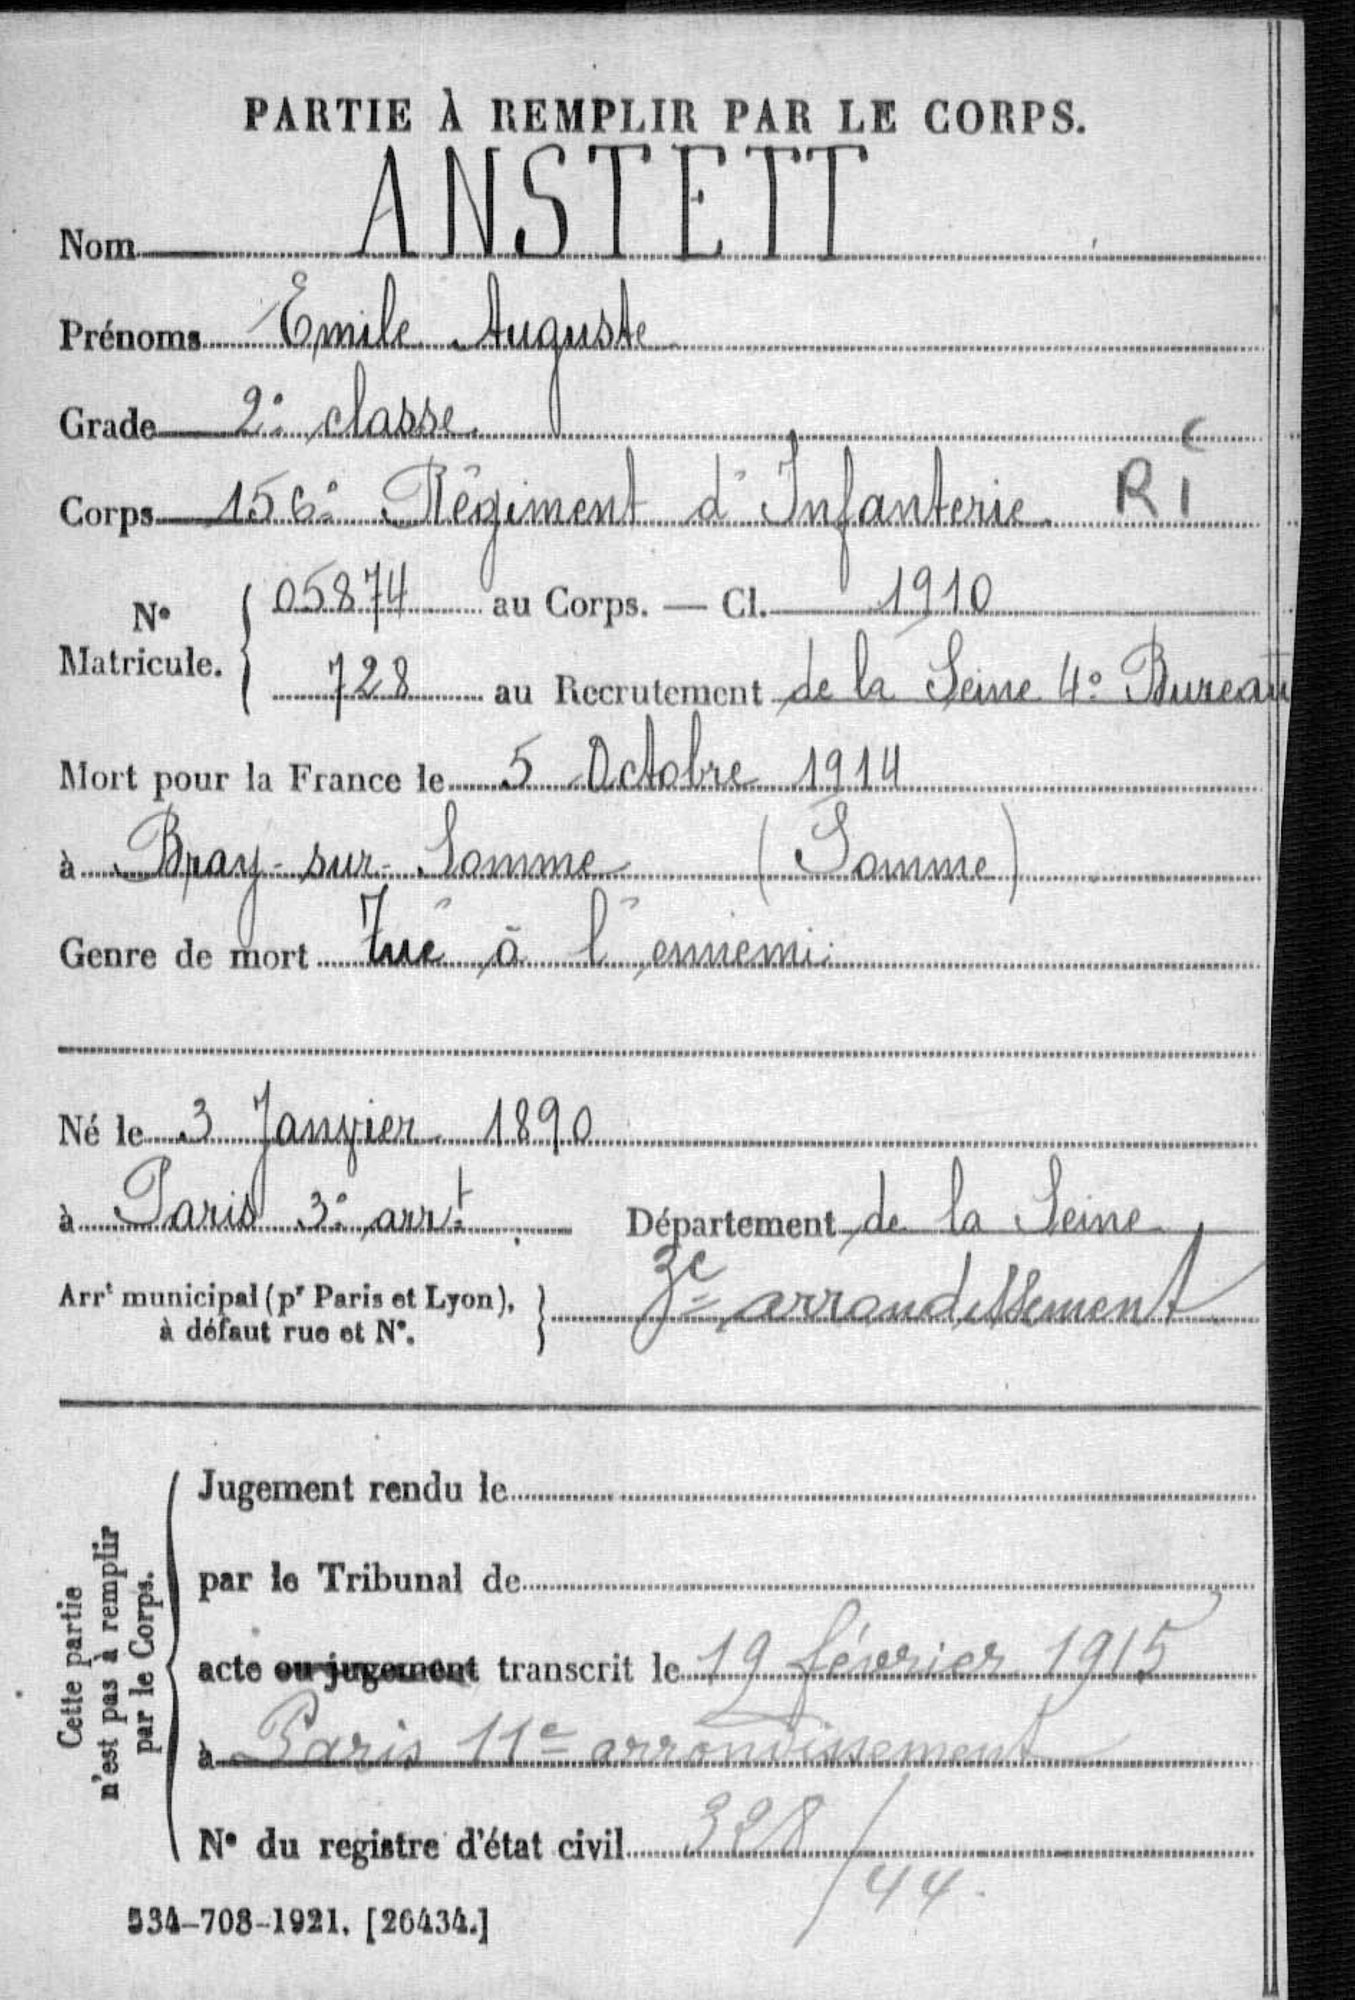 PARTIE À REMPLIR PAR LE CORPS.
Nom ANSTETT
Prénoms Emile Auguste
Grade 2e classe
Corps 156e Régiment d'Infanterie Ri
No Matricule. 05874 au Corps. — Cl. 1910
728 au Recrutement de la Seine 4o Bureau
Mort pour la France le 5 Octobre 1914
à Bray-sur-Somme (Somme)
Genre de mort Tué à l'ennemi
Né le 3 Janvier 1890
à Paris 3e arrt Département de la Seine
Arrt municipal (pr Paris et Lyon), à défaut rue et No. 3e arrondissement
Cette partie n'est pas à remplir par le Corps.
Jugement rendu le
par le Tribunal de
acte ou jugement transcrit le 19 février 1915
à Paris 11e arrondissement
No du registre d'état civil 328/44
534-708-1921. [26434.]